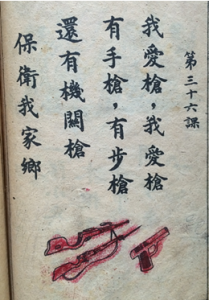 第三十六課
我愛槍，我愛槍
有手槍，有步槍
還有機關槍
保衛我家鄉